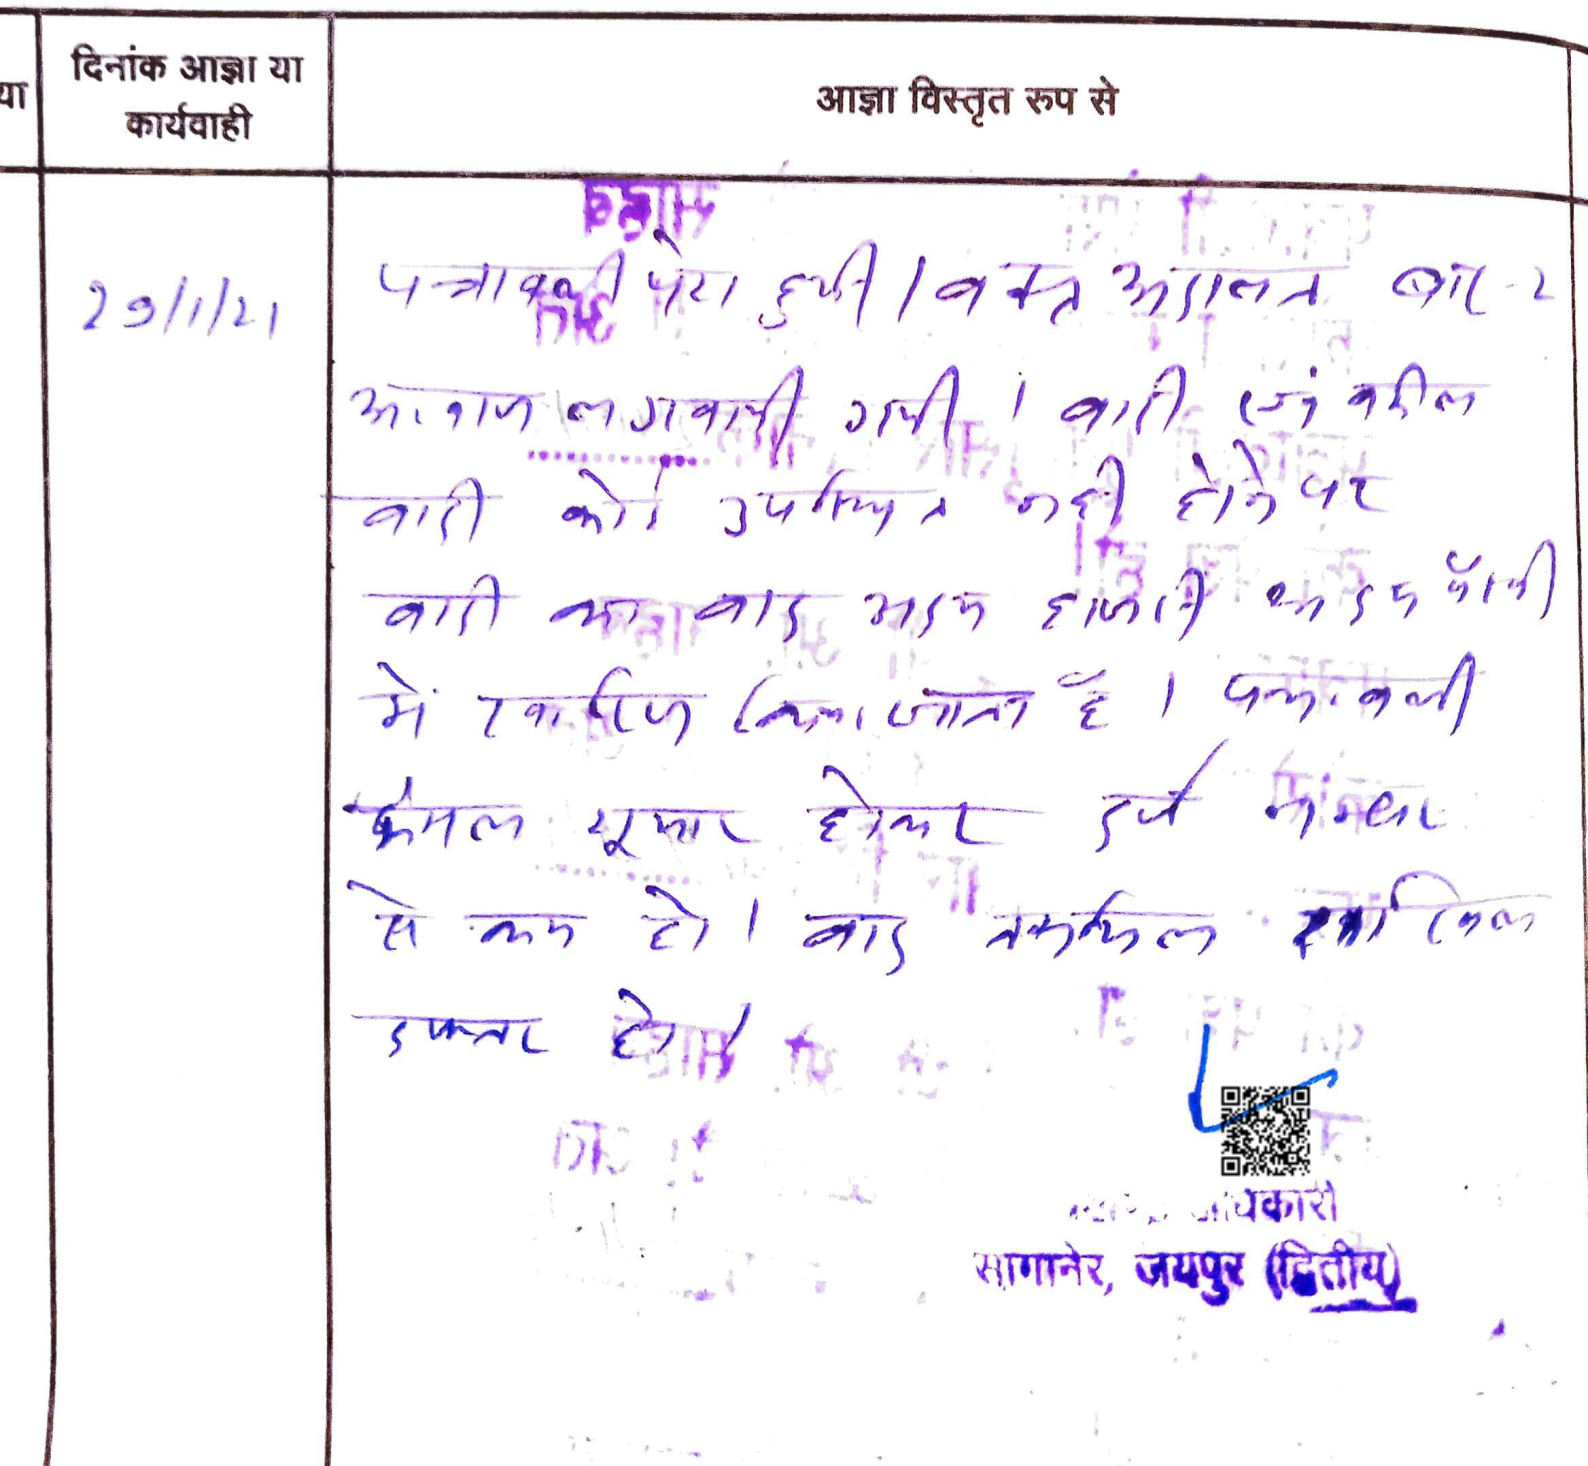 या
दिनांक आज्ञा या
कार्यवाही
आज्ञा विस्तृत रुप से
29/1/21
पत्रावली पेश हुयी। वक्त अदालत बार-२
आवाज लगवायी गयी। वादी एवं वकील
वादी कोई उपस्थित नहीं होने पर
वादी का वाद अदम हाजरी अदम पैरवी
में खारिज किया जाता है। पत्रावली
फैसल शुमार होकर दर्ज नम्बर
से कम हो। वाद तकमिल दाखिल
दफ्तर हो।
सांगानेर, जयपुर (द्वितीय)